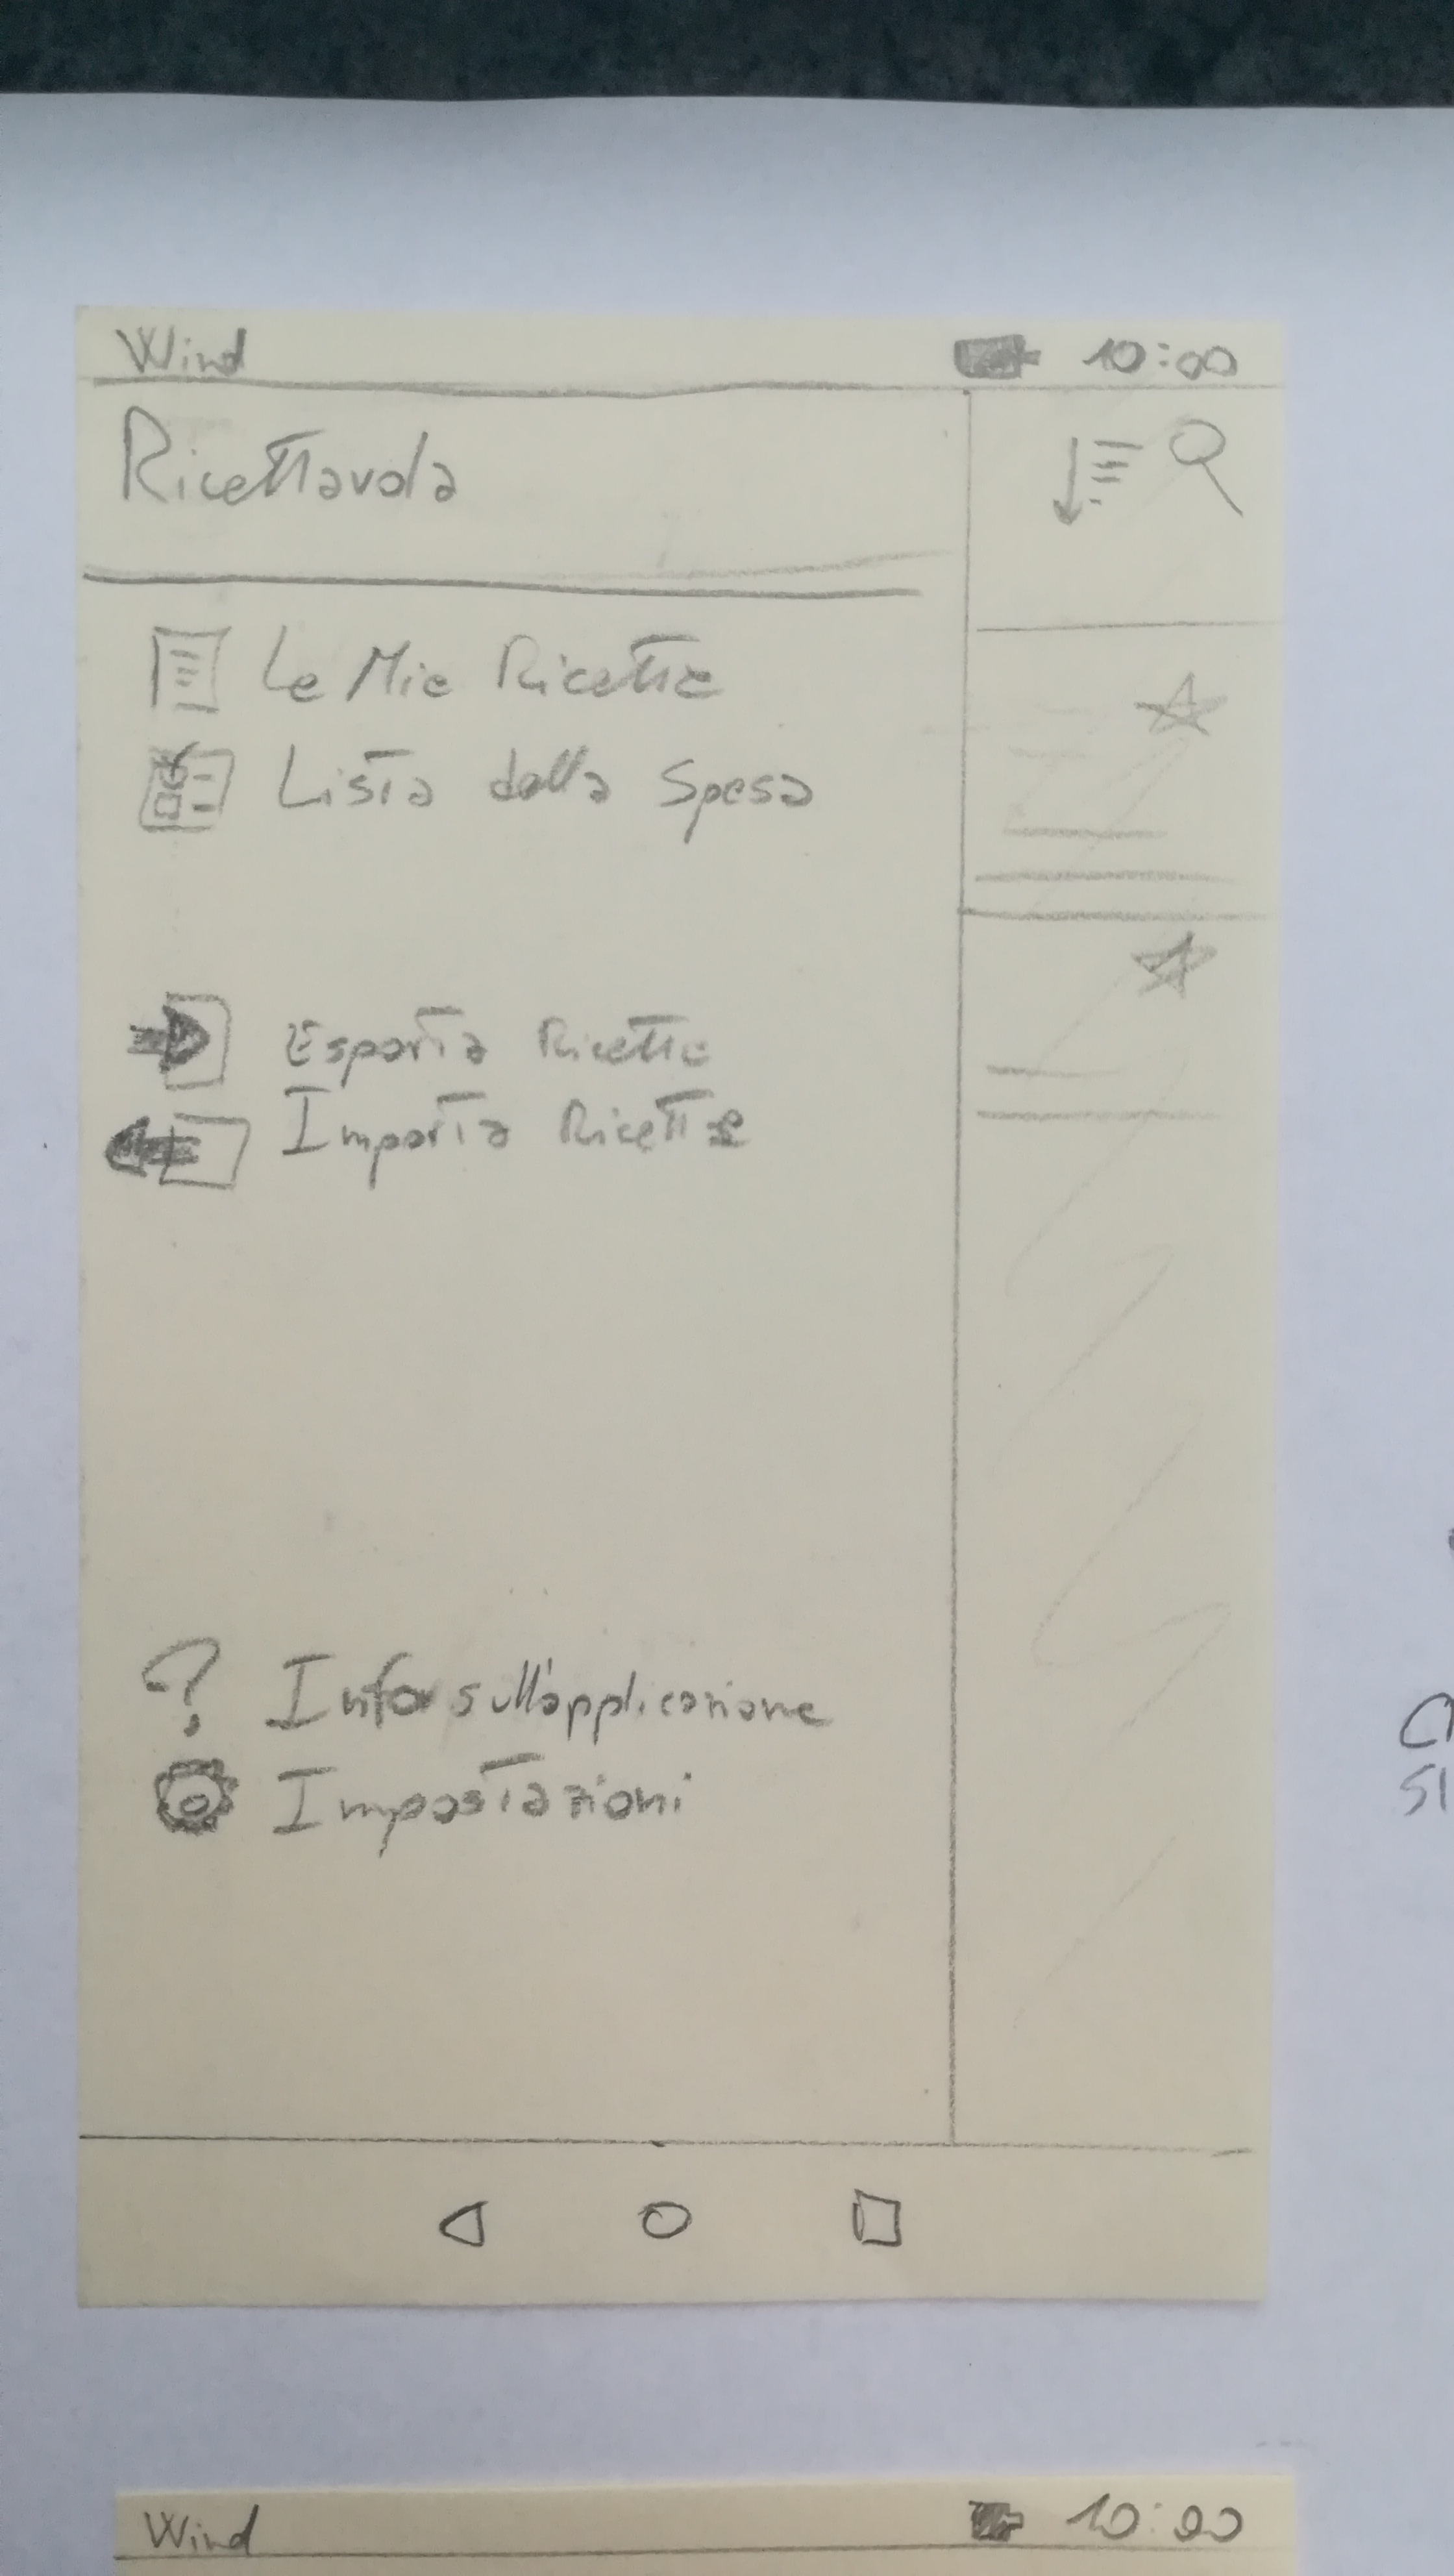 Wind 10:00
Ricettavola
Le Mie Ricette
Lista della Spesa
Esporta Ricette
Importa Ricette
Info sull'applicazione
Impostazioni
Wind 10:00